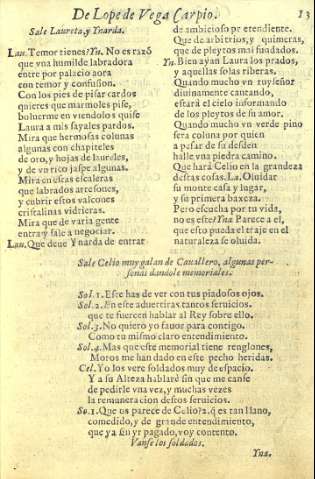 De Lope de Vega Carpio. 13
Sale Laureta, y Ynarda.
Lau. Temor tienes? Yna. No es razõ
que vna humilde labradora
entre por palacio aora
con temor y confusion.
Con los pies de pisar cardos
quieres que marmoles pise,
boluerme en viendolos quise
Laura a mis sayales pardos.
Mira que hermosas colunas
algunas con chapiteles
de oro, y hojas de laureles,
y de vn rico jaspe algunas.
Mira en estas escaleras
que labrados artesones,
y cubrir estos valcones
cristalinas vidrieras.
Mira que de varia gente
entra y sale a negociar.
Lau. Que deue Ynarda de entrar
de ambicioso pretendiente.
Que de arbitrios, y quimeras,
que de pleytos mal fundados.
Yn. Bien ayan Laura los prados,
y aquellas solas riberas.
Quando mucho vn ruyseñor
diuinamente cantando,
estará el cielo informando
de los pleytos de su amor.
Quando mucho vn verde pino
sera coluna por quien
a pesar de su desden
halle vna piedra camino.
Que hará Celio en la grandeza
destas cosas. La. Oluidar
su monte casa y lugar,
y su primera baxeza.
Pero escucha por tu vida,
no es este? Yna Parece a el,
que esto pueda el traje en el
naturaleza se oluida.
Sale Celio muy galan de Cauallero, algunos per-
sonas dandole memoriales.
Sol. 1. Este has de ver con tus piadosos ojos.
Sol. 2. En este aduertiras tantos seruicios.
que te fuercen hablar al Rey sobre ello.
Sol. 3. No quiero yo fauor para contigo.
Como tu mismo claro entendimiento.
Sol. 4. Mas que este memorial tiene renglones,
Moros me han dado en este pecho heridas.
Cel. Yo los vere soldados muy de espacio.
Y a su Alteza hablaré sin que me canse
de pedirle vna vez, y muchas vezes
la remuneracion destos seruicios.
So. 1. Que os parece de Celio? 2. q̃ es tan llano,
comedido, y de grande entendimiento,
que ya sin yr pagado, voy contento.
Vanse los soldados.
Yna.